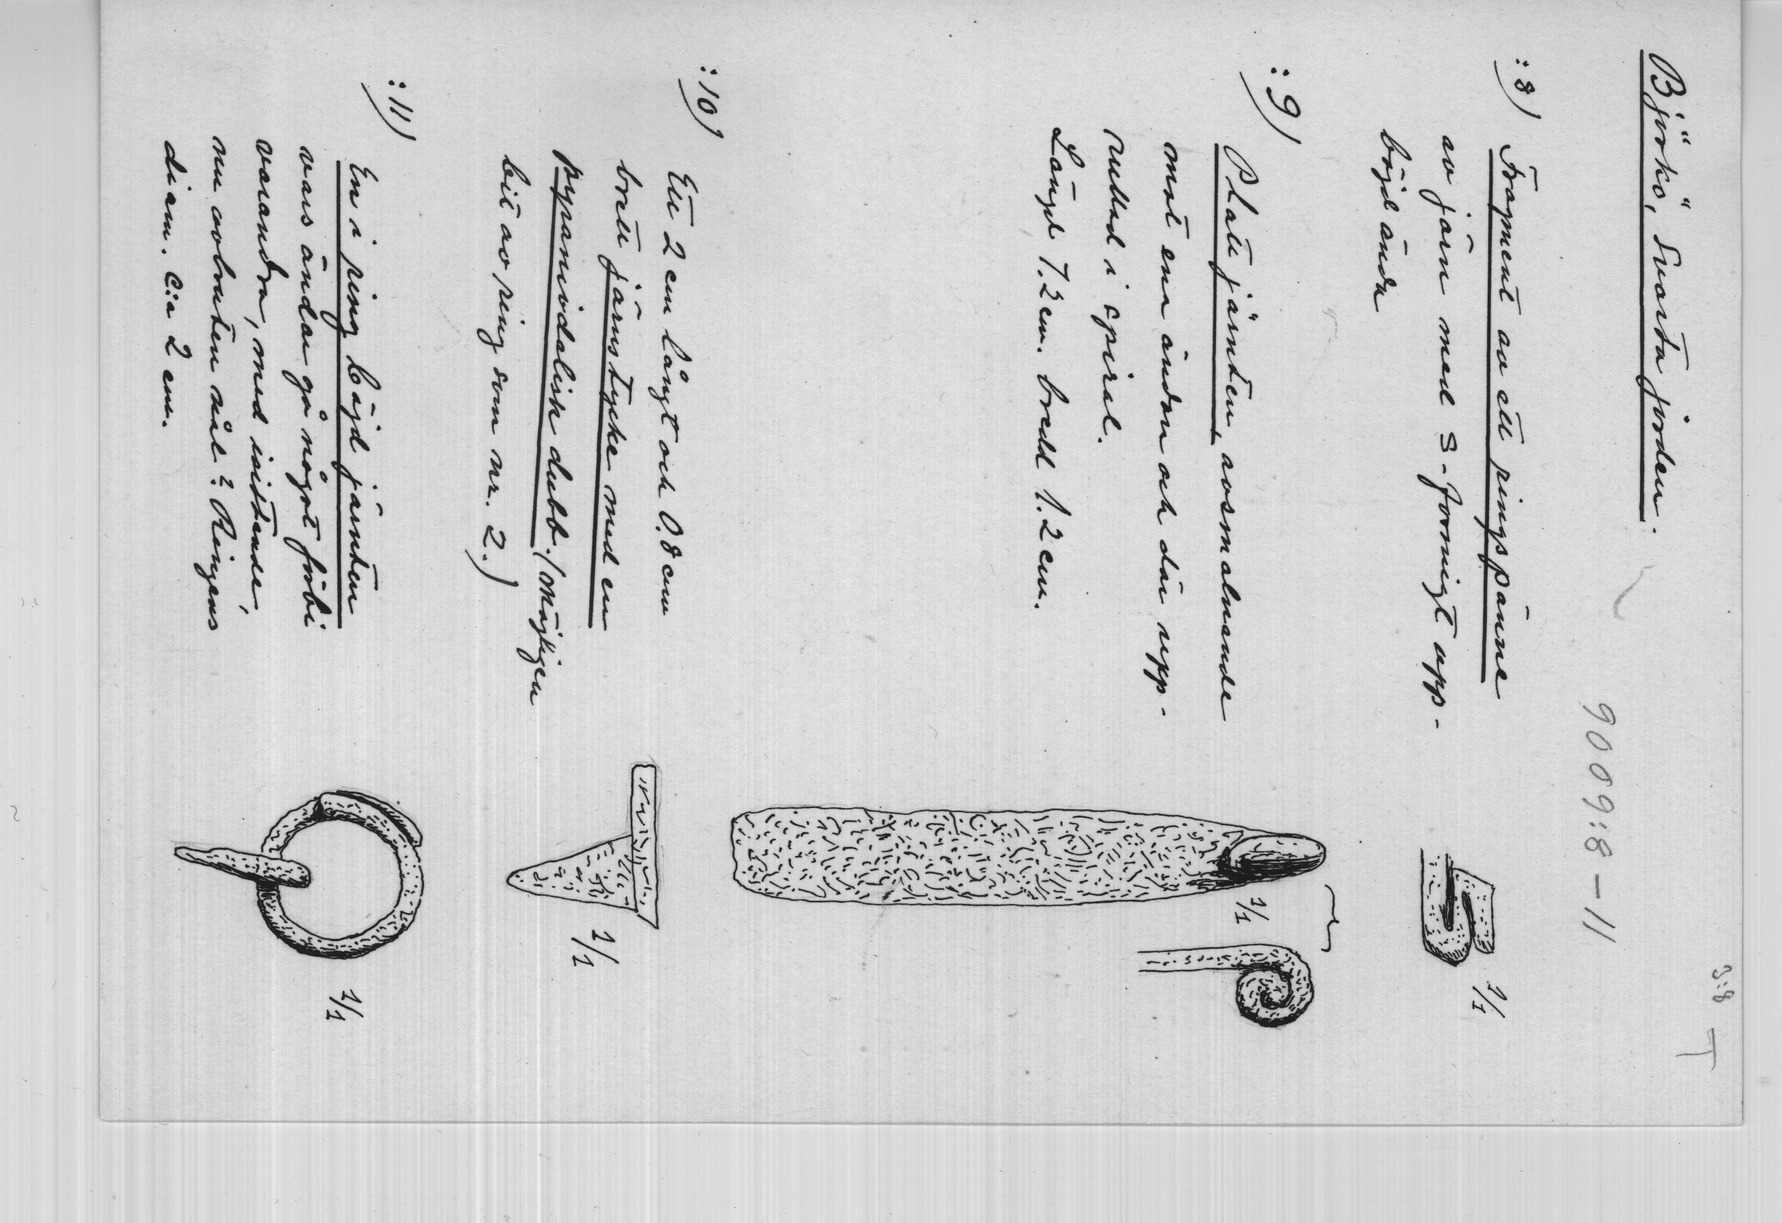 S:8 T
Björkö, Svarta jorden.
9009:8-11
:8) Fragment av ett ringspänne
av järn med S-formigt upp-
böjd ända
1/1
:9) Platt järnten, avsmalnande
mot ena ändan och där upp-
rullad i spiral.
Längd 7.2 cm. bredd 1.2 cm.
1/1
:10) Ett 2 cm långt och 0,8 cm
brett järnstycke med en
pyramidalisk dubb. (Möjligen
bit av ring som nr. 2.)
1/1
:11) En i ring böjd järnten
vars ändar gå något förbi
varandra, med sittande,
nu avbruten nål? Ringens
diam. c:a 2 cm.
1/1